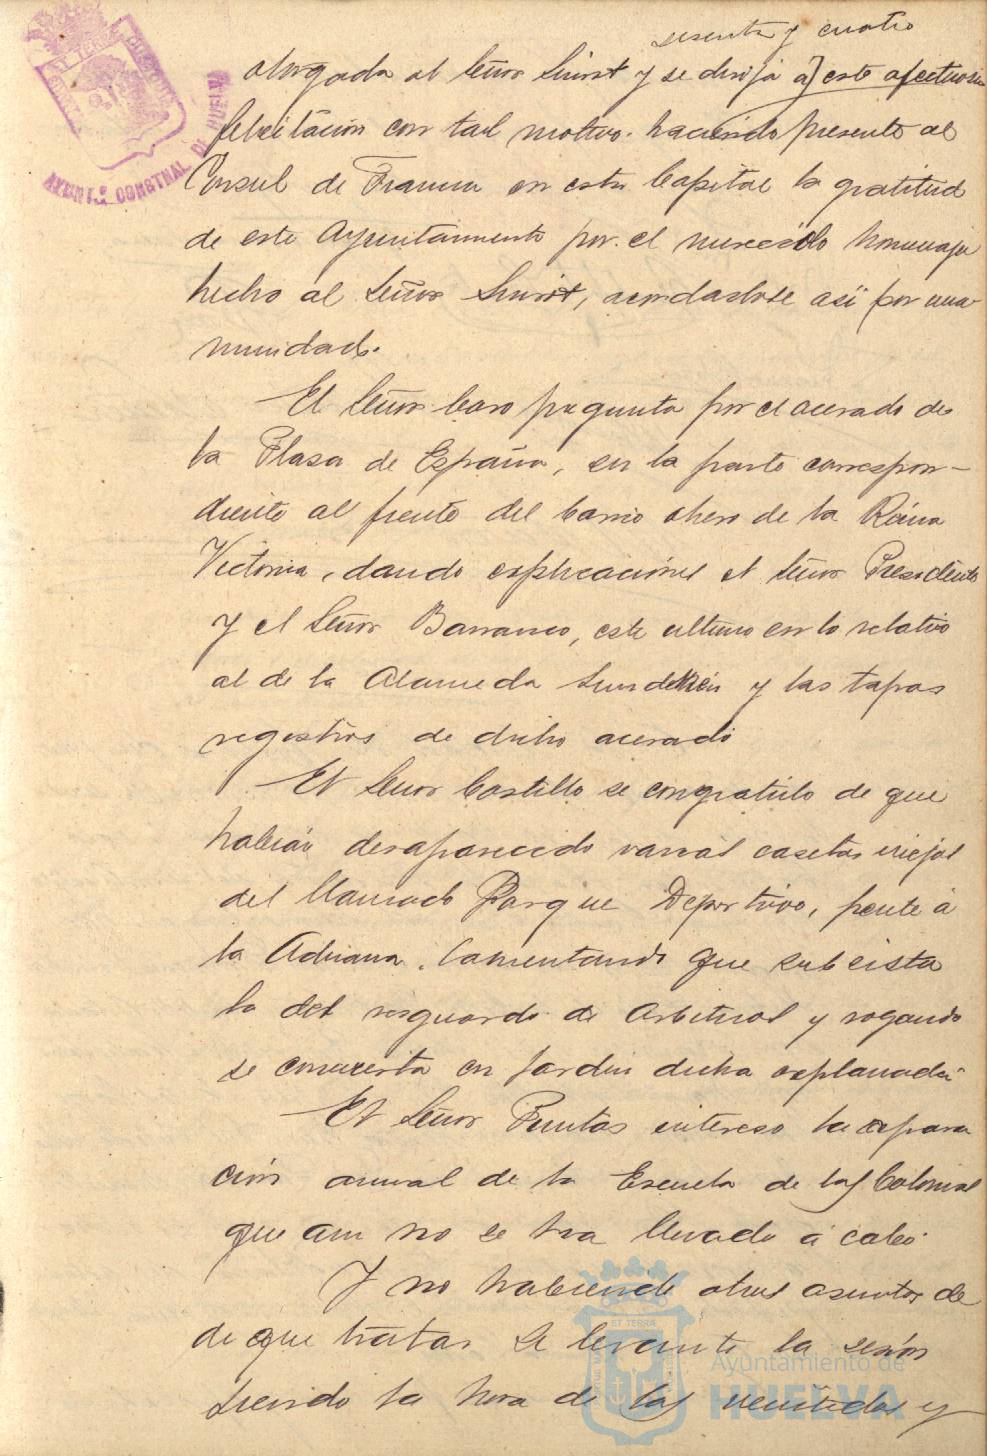 sesenta y cuatro
otorgada al Señor Siurot y se dirija á este afectuosa
felicitación con tal motivo. haciendo presente al
Consul de Francia en esta Capital la gratitud
de este Ayuntamiento por el merecido homenaje
hecho al Señor Siurot, acordandose así por una-
nimidad.
El Señor Caro pregunta por el acerado de
la Plasa de España, en la parte correspon-
diente al frente del barrio obrero de la Reina
Victoria, dando explicaciones el Señor Presidente
y el Señor Barranco, este ultimo en lo relativo
al de la Alameda Sundheim y las tapas
registros de dicho acerado
El Señor Castillo se congratulo de que
habian desaparecido varias casetas viejas
del llamado Parque Deportivo, frente á
la Aduana, lamentando que subsista
la del resguardo de Arbitrios y rogando
se convierta en Jardin dicha explanada
El Señor Puntas intereso la repara
ción anual de la Escuela de las Colonias
que aun no se ha llevado á cabo.
Y no habiendo otros asuntos de
de que tratar se levanto la sesión
siendo la hora de las veintidos y
AYUNT.º CONSTNAL. DE HUELVA
ET TERRA
Ayuntamiento de
HUELVA